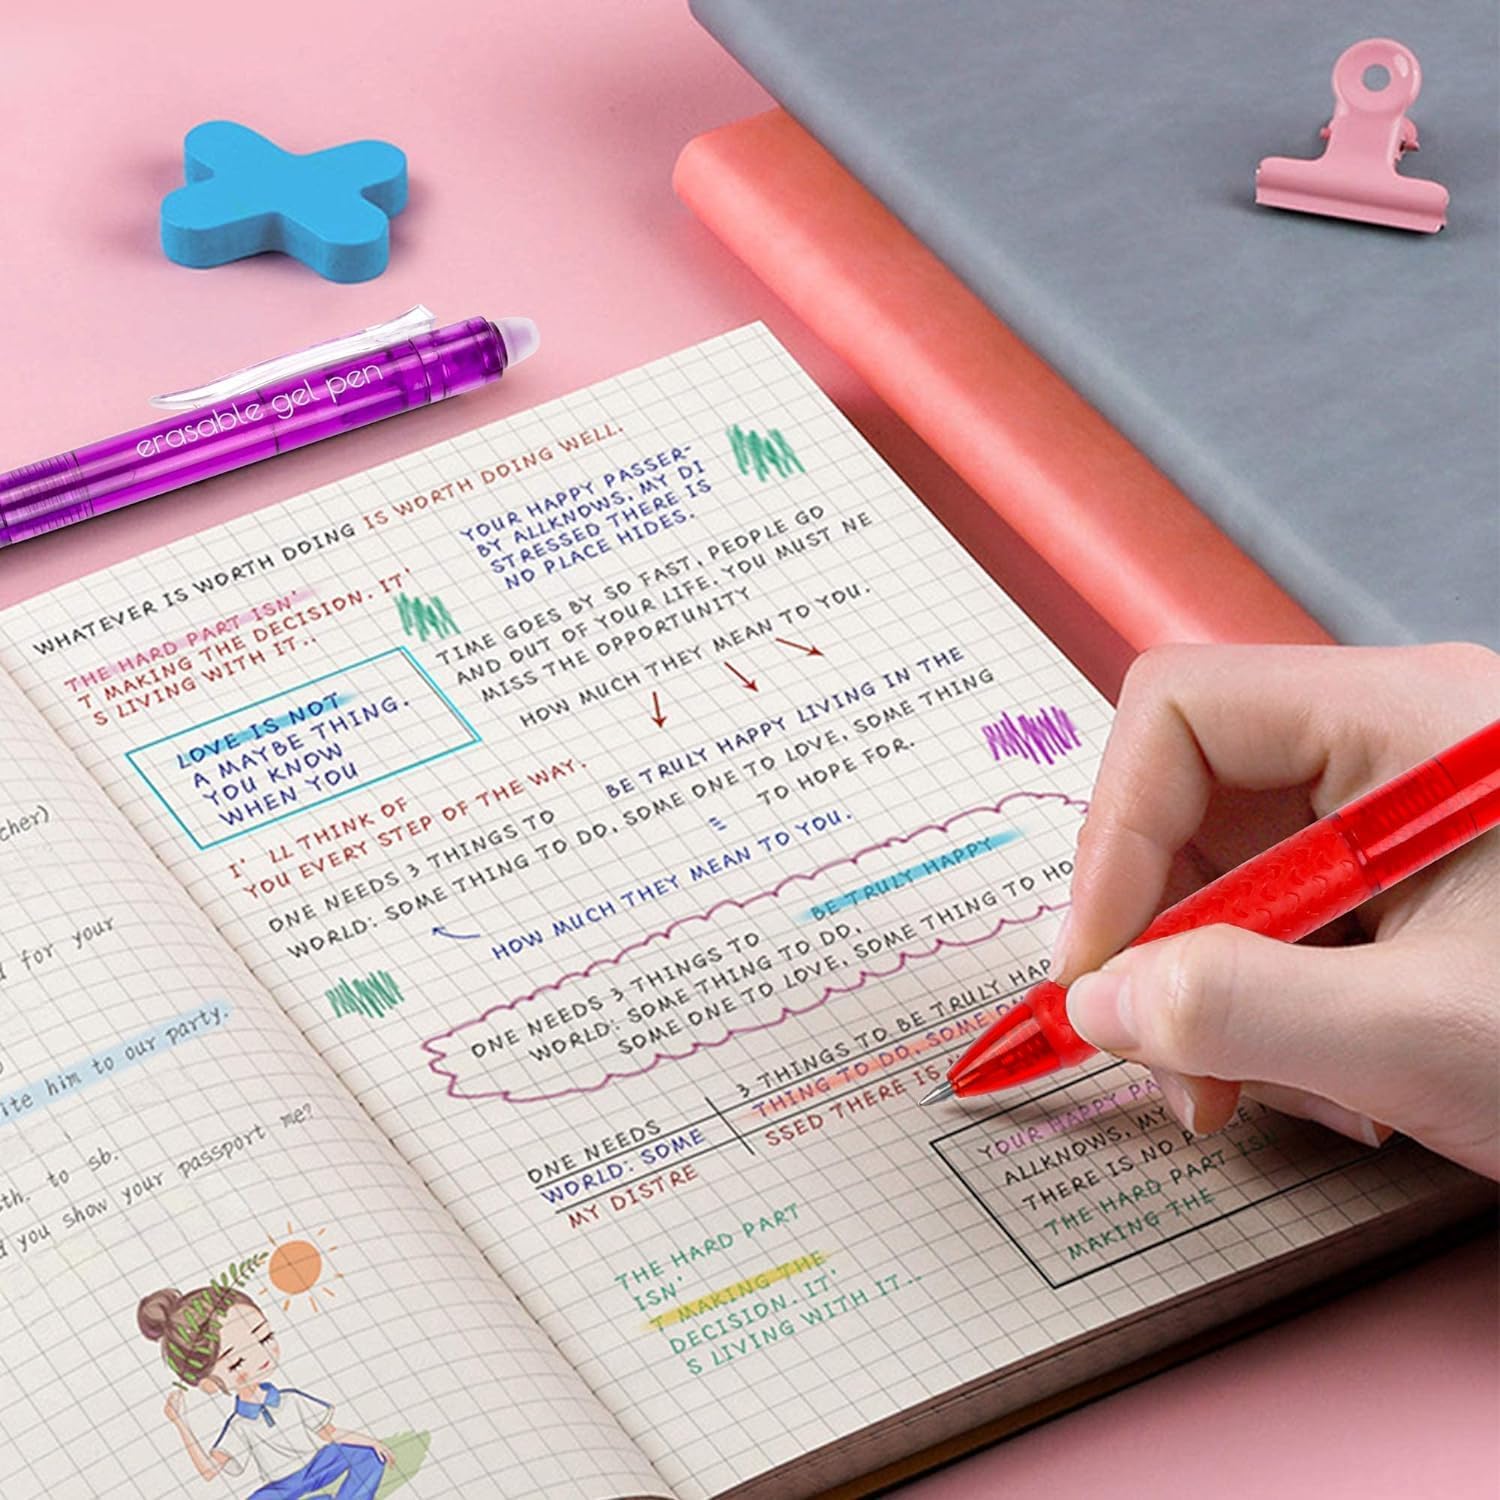 erasable gel pen
WHATEVER IS WORTH DOING IS WORTH DOING WELL.
THE HARD PART ISN'
T MAKING THE DECISION. IT'
S LIVING WITH IT..
YOUR HAPPY PASSER-
BY ALLKNOWS, MY DI
STRESSED THERE IS
NO PLACE HIDES.
TIME GOES BY SO FAST, PEOPLE GO
AND OUT OF YOUR LIFE. YOU MUST NE
MISS THE OPPORTUNITY
HOW MUCH THEY MEAN TO YOU.
LOVE IS NOT
A MAYBE THING.
YOU KNOW
WHEN YOU
I' LL THINK OF
YOU EVERY STEP OF THE WAY.
BE TRULY HAPPY LIVING IN THE
ONE NEEDS 3 THINGS TO
WORLD: SOME THING TO DO, SOME ONE TO LOVE, SOME THING
TO HOPE FOR.
HOW MUCH THEY MEAN TO YOU.
BE TRULY HAPPY
ONE NEEDS 3 THINGS TO
WORLD: SOME THING TO DO,
SOME ONE TO LOVE, SOME THING TO HO
3 THINGS TO BE TRULY HAP
THING TO DO, SOME O
SSED THERE IS
ONE NEEDS
WORLD: SOME
MY DISTRE
YOUR HAPPY PA
ALLKNOWS, MY
THERE IS NO
THE HARD PART ISN
MAKING THE
THE HARD PART
ISN'
T MAKING THE
DECISION. IT'
S LIVING WITH IT..
cher)
for your
ite him to our party.
th. to sb.
you show your passport me?